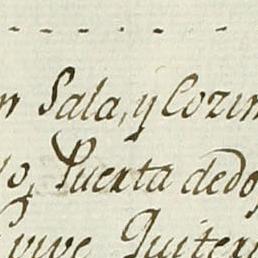 Sala, y Cozin
Puerta dedo
vive Quiteri